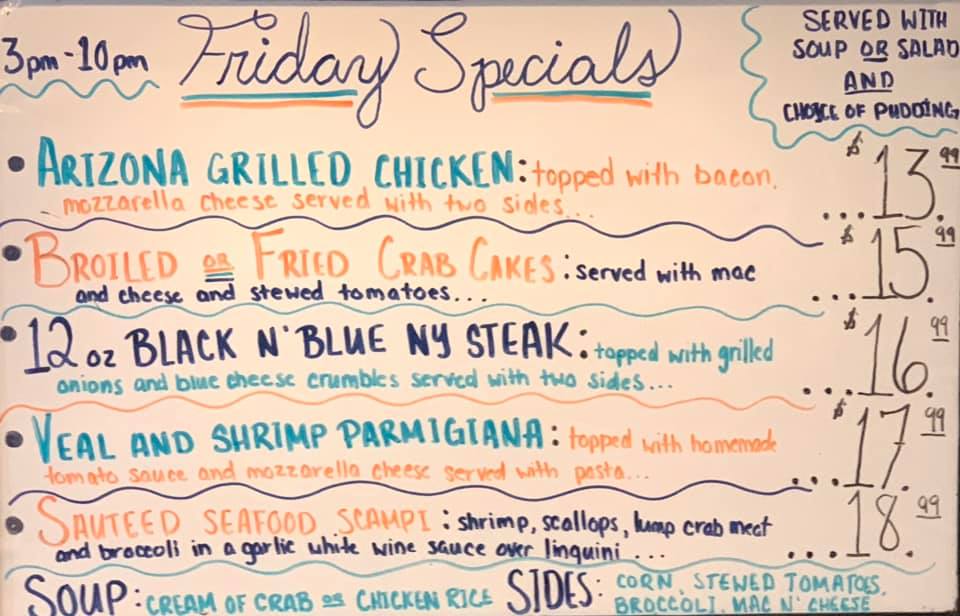 3pm-10pm Friday Specials
SERVED WITH
SOUP OR SALAD
AND
CHOICE OF PUDDING
• ARIZONA GRILLED CHICKEN: topped with bacon,
mozzarella cheese served with two sides... $13.99
• BROILED OR FRIED CRAB CAKES: served with mac
and cheese and stewed tomatoes... ...$15.99
• 12 oz BLACK N' BLUE NY STEAK: topped with grilled
onions and blue cheese crumbles served with two sides... ...$16.99
• VEAL AND SHRIMP PARMIGIANA: topped with homemade
tomato sauce and mozzarella cheese served with pasta... ...$17.99
• SAUTEED SEAFOOD SCAMPI: shrimp, scallops, lump crab meat
and broccoli in a garlic white wine sauce over linguini... ...$18.99
SOUP: CREAM OF CRAB OR CHICKEN RICE SIDES: CORN, STEWED TOMATOES,
BROCCOLI, MAC N' CHEESE